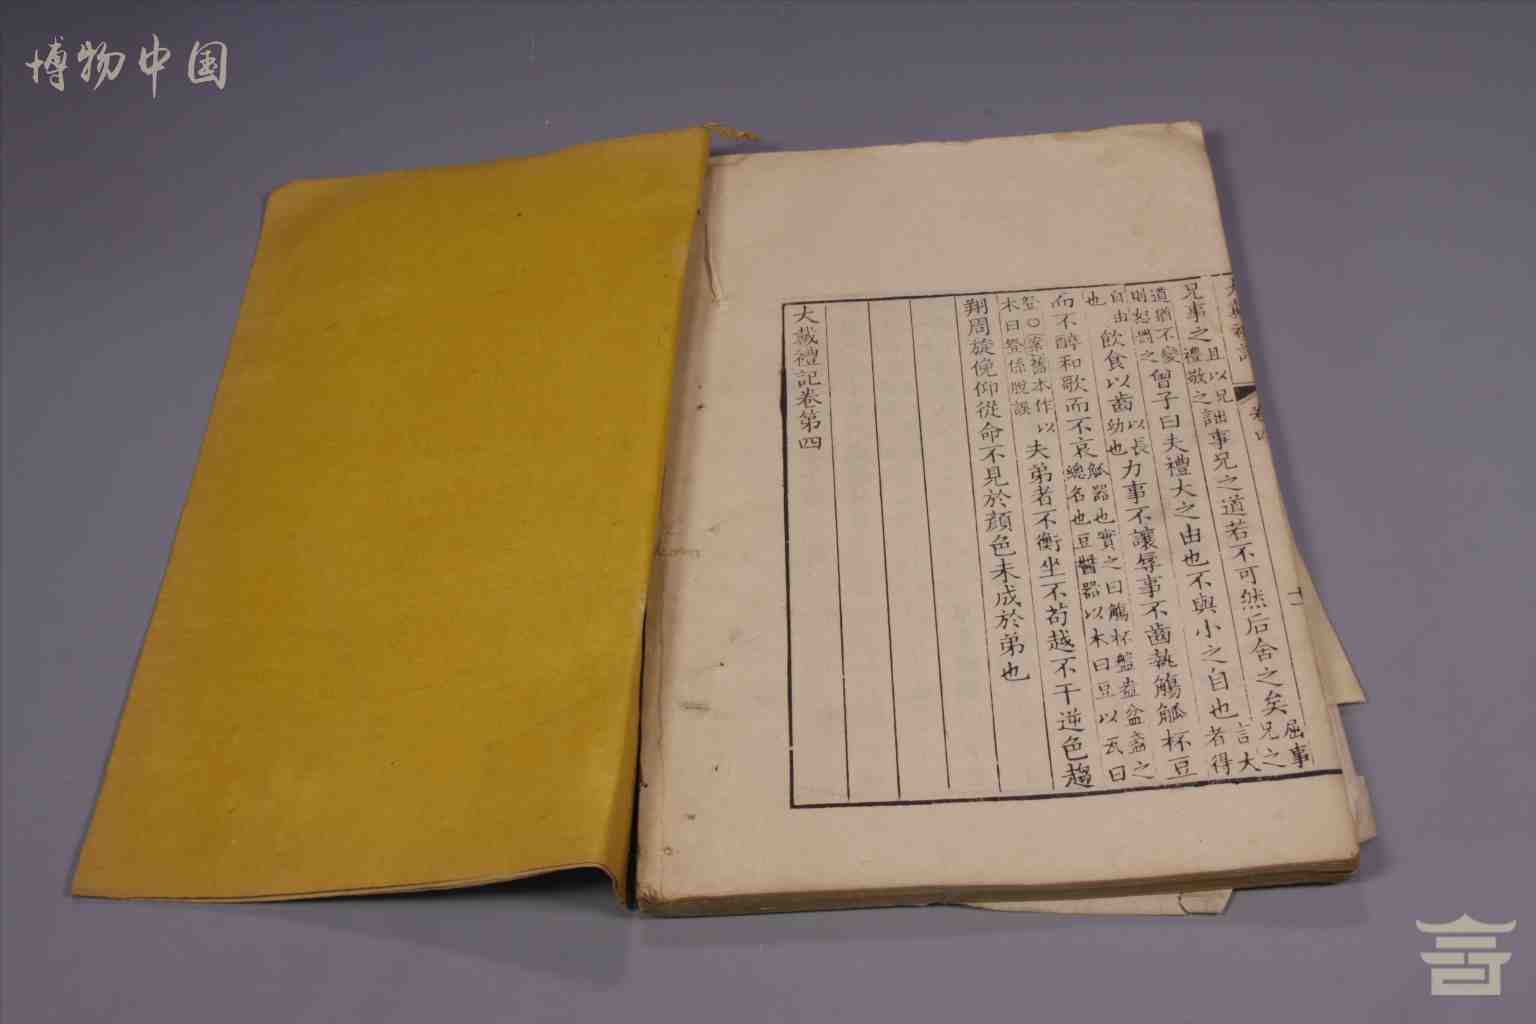 博物中国
大戴禮記
卷四
十一
兄事之且以兄禮敬之詘事兄之道若不可然后舍之矣屈事兄之
道猶不變則怒罰之曾子曰夫禮大之由也不與小之自也言大者得
自由也飲食以齒以長幼也力事不讓辱事不齒執觴觚杯豆
而不醉和歌而不哀觚器也實之曰觴杯盤盎盆盞之總名也豆醬器以木曰豆以瓦曰
登○案舊本作以木曰登係脫誤夫弟者不衡坐不苟越不干逆色趨
翔周旋俛仰從命不見於顏色未成於弟也
大戴禮記卷第四